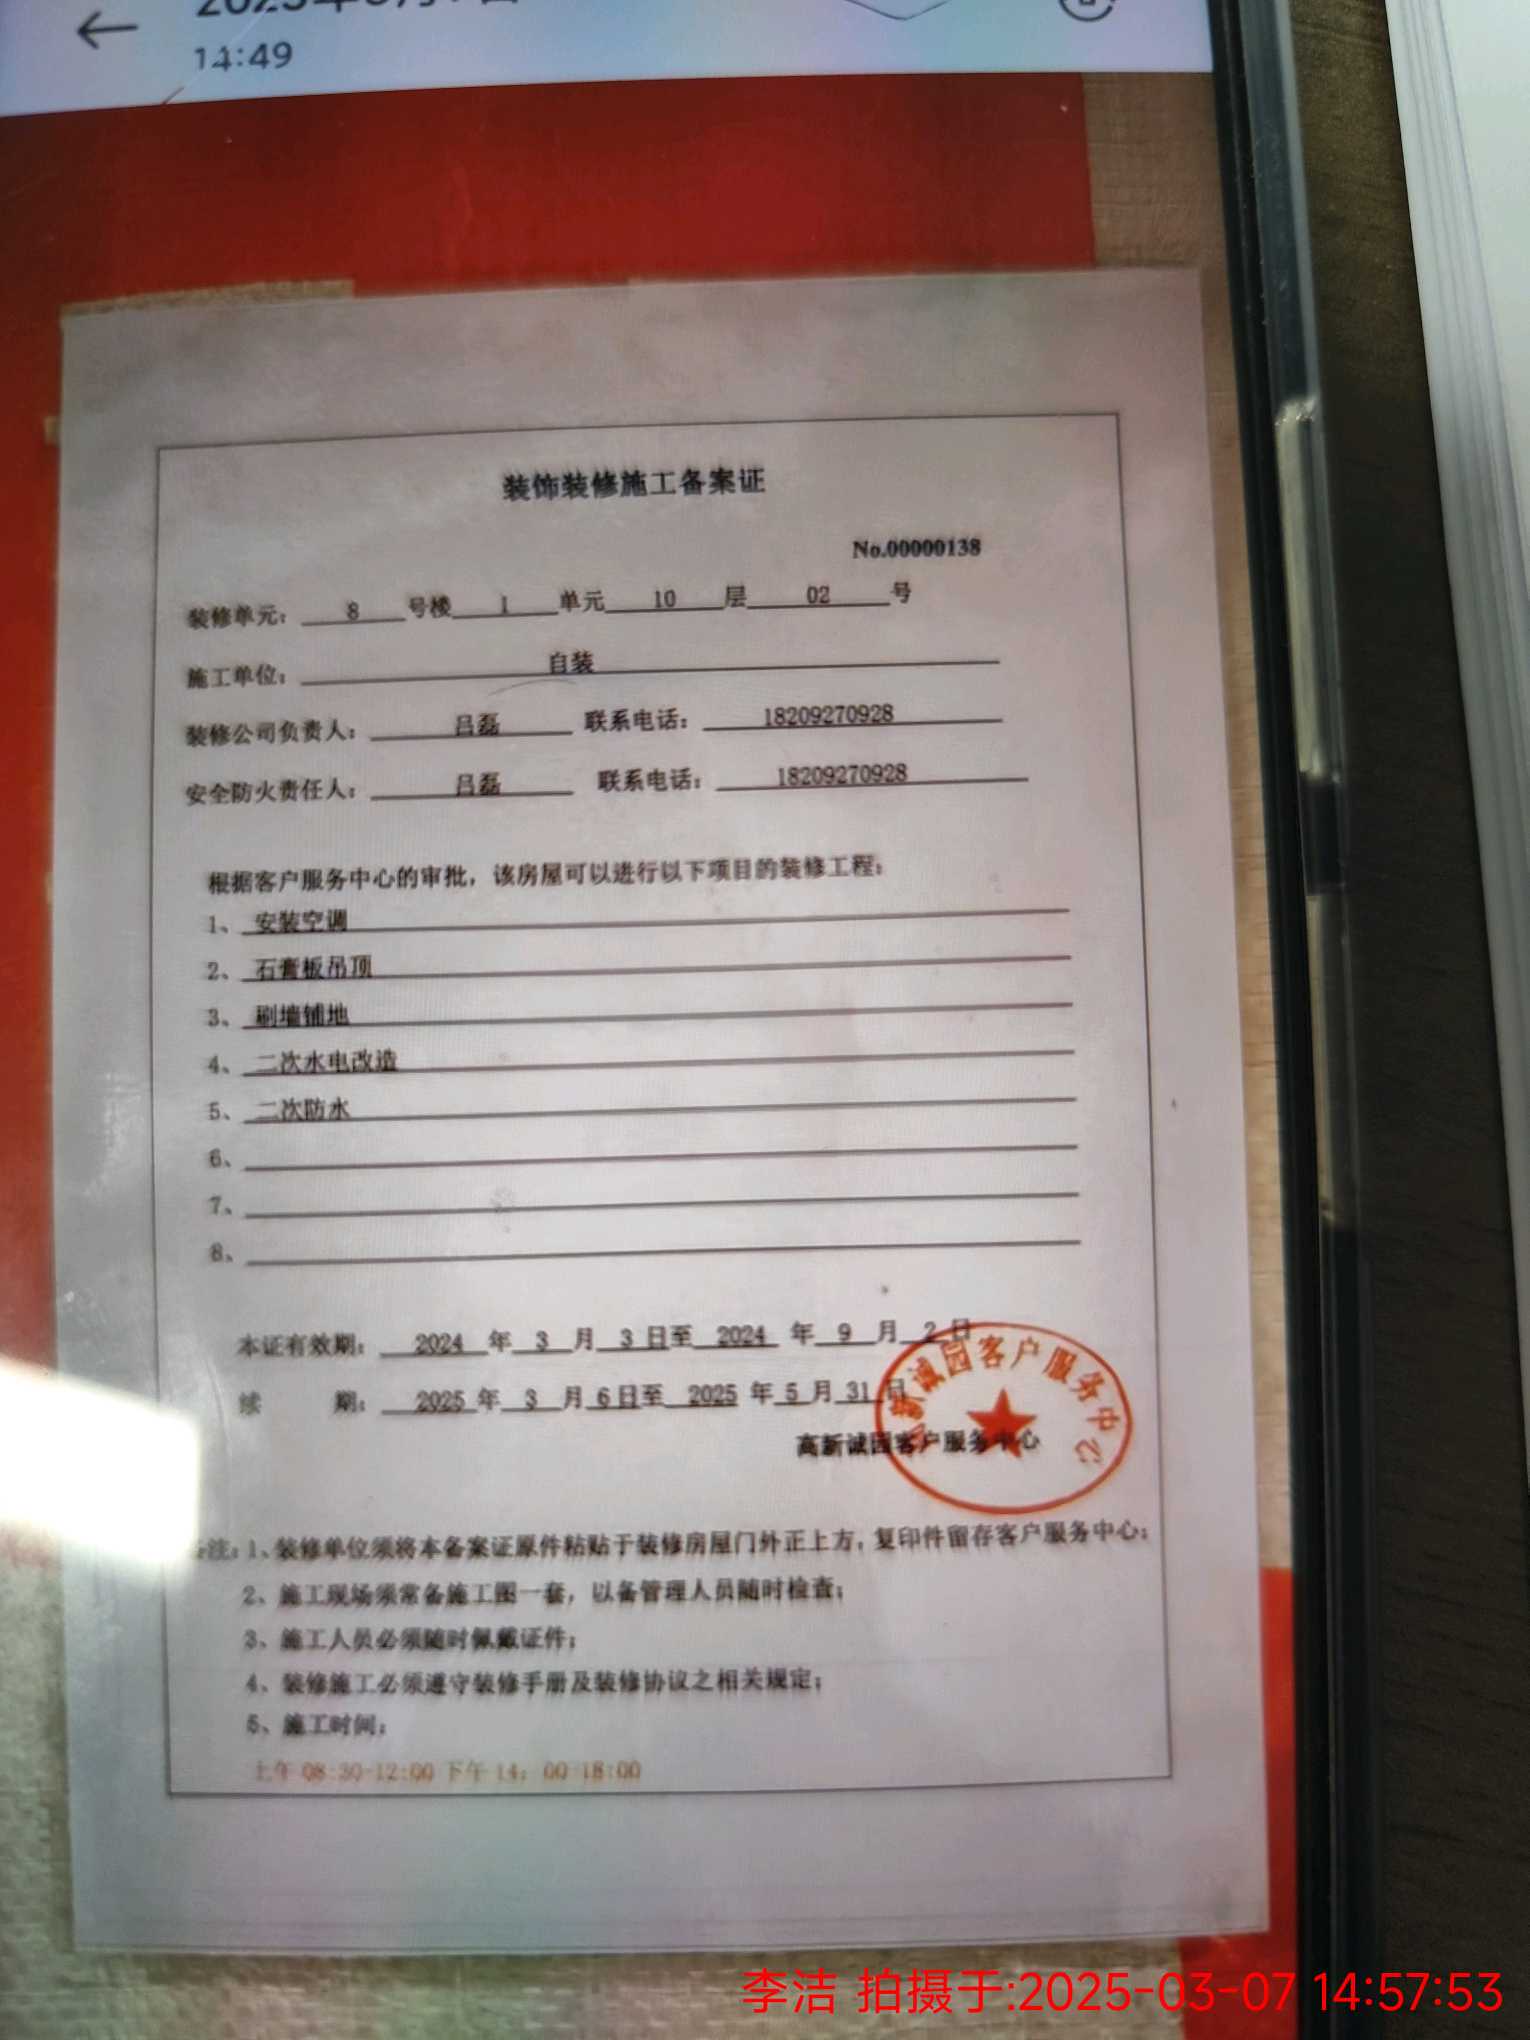 14:49
装饰装修施工备案证
No.00000138
装修单元： 8 号楼 1 单元 10 层 02 号
施工单位： 自装
装修公司负责人： 吕磊 联系电话： 18209270928
安全防火责任人： 吕磊 联系电话： 18209270928
根据客户服务中心的审批，该房屋可以进行以下项目的装修工程：
1、安装空调
2、石膏板吊顶
3、刷墙铺地
4、二次水电改造
5、二次防水
6、
7、
8、
本证有效期： 2024 年 3 月 3 日至 2024 年 9 月 2 日
续 期： 2025 年 3 月 6 日至 2025 年 5 月 31 日
新诚园客户服务中心
高新诚园客户服务中心
备注：1、装修单位须将本备案证原件粘贴于装修房屋门外正上方，复印件留存客户服务中心；
2、施工现场须常备施工图一套，以备管理人员随时检查；
3、施工人员必须随时佩戴证件；
4、装修施工必须遵守装修手册及装修协议之相关规定；
5、施工时间：
上午 08:30-12:00 下午 14：00-18:00
李洁 拍摄于:2025-03-07 14:57:53